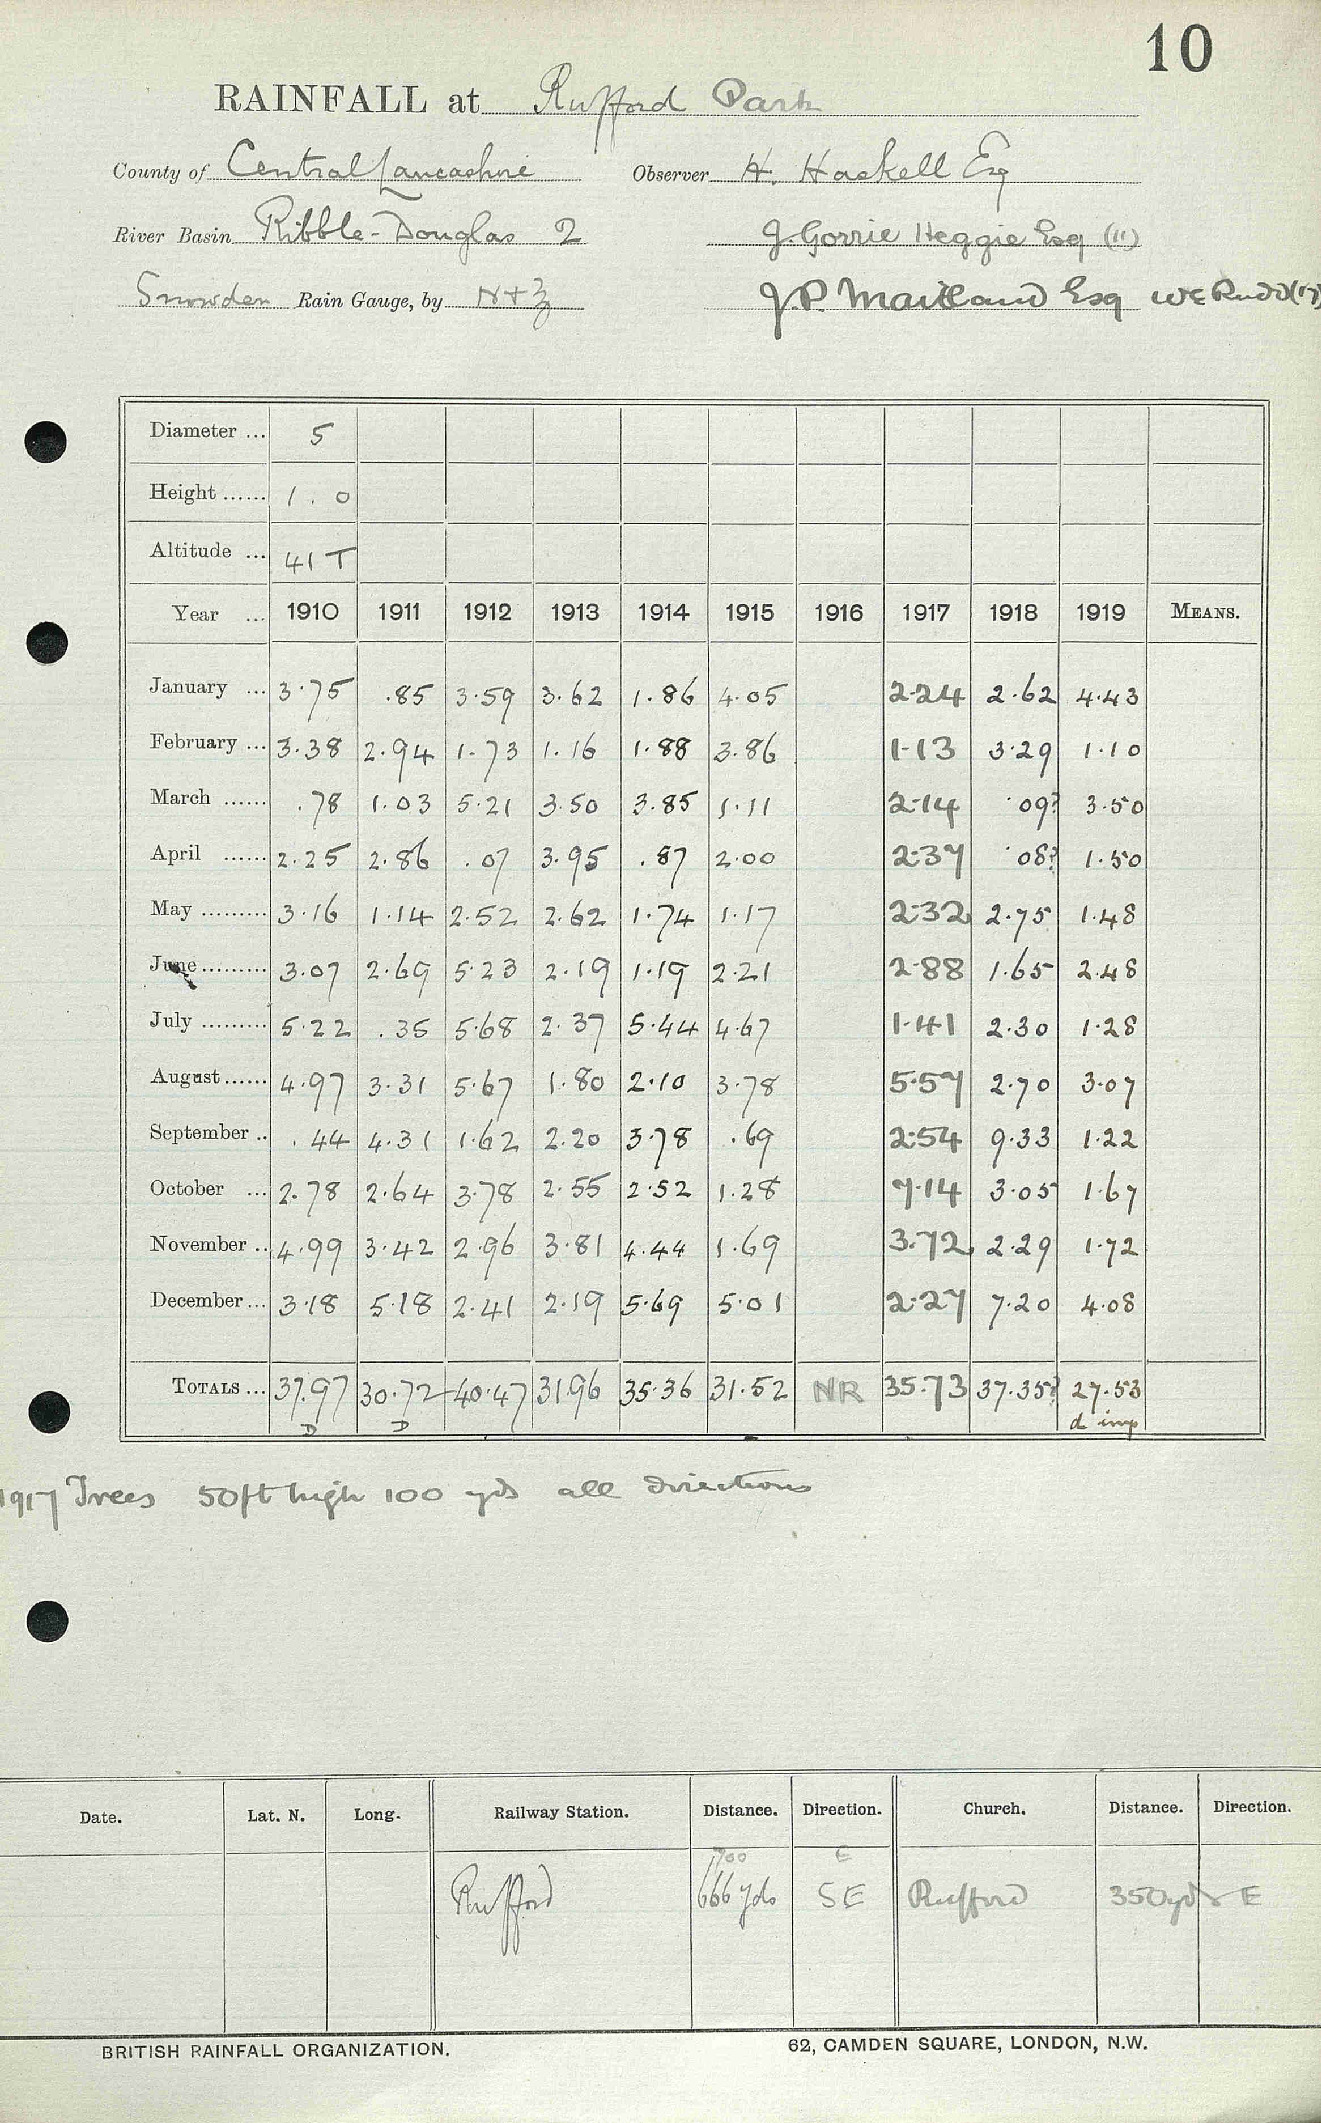 10
RAINFALL at Rufford Park
County of Central Lancashire Observer H. Haskell Esq
River Basin Ribble-Douglas 2 J. Gorrie Heggie Esq (11)
Snowden Rain Gauge, by N+Z J.P. Maitland Esq W E Rudd (17)
Diameter ... 5
Height ...... 1 . 0
Altitude ... 41 T
Year ... 1910 1911 1912 1913 1914 1915 1916 1917 1918 1919 MEANS.
January ... 3.75 .85 3.59 3.62 1.86 4.05 2.24 2.62 4.43
February ... 3.38 2.94 1.73 1.16 1.88 3.86 1.13 3.29 1.10
March ...... .78 1.03 5.21 3.50 3.85 1.11 2.14 .09? 3.50
April ...... 2.25 2.86 .07 3.95 .87 2.00 2.37 .08? 1.50
May ......... 3.16 1.14 2.52 2.62 1.74 1.17 2.32 2.75 1.48
June ......... 3.07 2.69 5.23 2.19 1.19 2.21 2.88 1.65 2.48
July ......... 5.22 .35 5.68 2.37 5.44 4.67 1.41 2.30 1.28
August ...... 4.97 3.31 5.67 1.80 2.10 3.78 5.57 2.70 3.07
September .. .44 4.31 1.62 2.20 3.78 .69 2.54 9.33 1.22
October ... 2.78 2.64 3.78 2.55 2.52 1.28 7.14 3.05 1.67
November .. 4.99 3.42 2.96 3.81 4.44 1.69 3.72 2.29 1.72
December ... 3.18 5.18 2.41 2.19 5.69 5.01 2.27 7.20 4.08
TOTALS ... 37.97 30.72 40.47 31.96 35.36 31.52 NR 35.73 37.35? 27.53
D D d imp
1917 Trees 50ft high 100 yds all directions
Date. Lat. N. Long. Railway Station. Distance. Direction. Church. Distance. Direction.
1700 E
Rufford 666 yds SE Rufford 350 yds E
BRITISH RAINFALL ORGANIZATION. 62, CAMDEN SQUARE, LONDON, N.W.